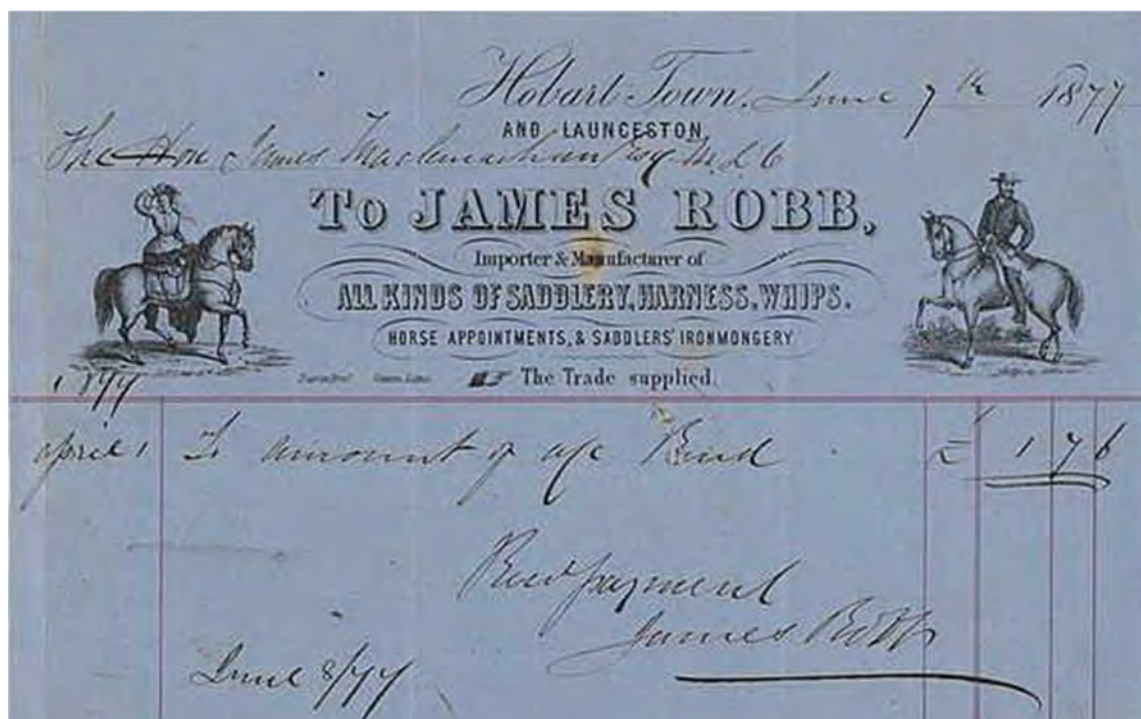 Hobart Town, June 7th 1877
AND LAUNCESTON,
The Hon James Esq M.L.C
TO JAMES ROBB,
Importer & Manufacturer of
ALL KINDS OF SADDLERY, HARNESS, WHIPS.
HORSE APPOINTMENTS, & SADDLERS' IRONMONGERY
The Trade supplied.
1877
April 1 To amount of a/c Rend £ 1 7 6
Recd payment
James Robb
June 8/77